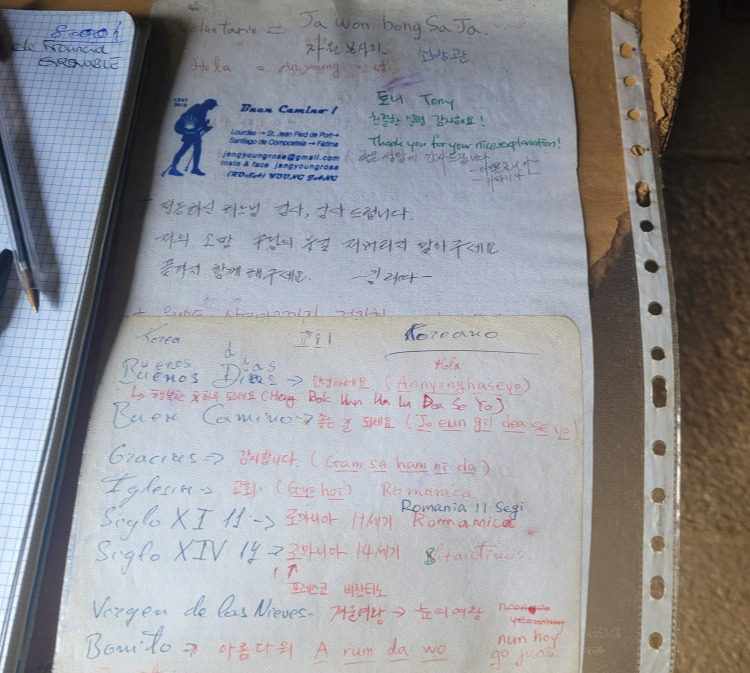 de Francia
GRENOBLE
Voluntario = Ja won bong Sa Ja.
자원봉사자
Hola = An young 안녕
LEPT 2012
Buen Camino!
Lourdes → St. Jean Pied de Port →
Santiago de Compostela → Fatima
jangyoungrosa@gmail.com
Insta & face jangyoungrosa
(ROSA) YOUNG JANG
토니 Tony
친절한 설명 감사해요!
Thank you for your nice explanation!
전능하신 하느님 감사, 감사드립니다.
저의 소망 주님의 손길 저버리지 말아주세요
끝까지 함께 해주세요.
Korea 교회 Koreano
Hola
Buenos Dias → 안녕하세요 (Annyonghaseyo)
↳ 행복한 하루 되세요 (Heng Bok Han Ha Lu Doa Se Yo)
Buen Camino → 좋은 길 되세요 (Jo eun gil dea se yo)
Gracias => 감사합니다. (Gam sa ham ni da)
Iglesia → 교회. (Gyo hoi) Romanica
Romania 11 Segi
Siglo XI 11 → 로마니아 11세기 Romanica
Siglo XIV 14 → 로마니아 14세기 Bitantinos.
프레스코 비잔티노
Virgen de las Nieves - 겨울여왕 → 눈의여왕
num hoy
go juan
Bonito → 아름다워 A rum da wo